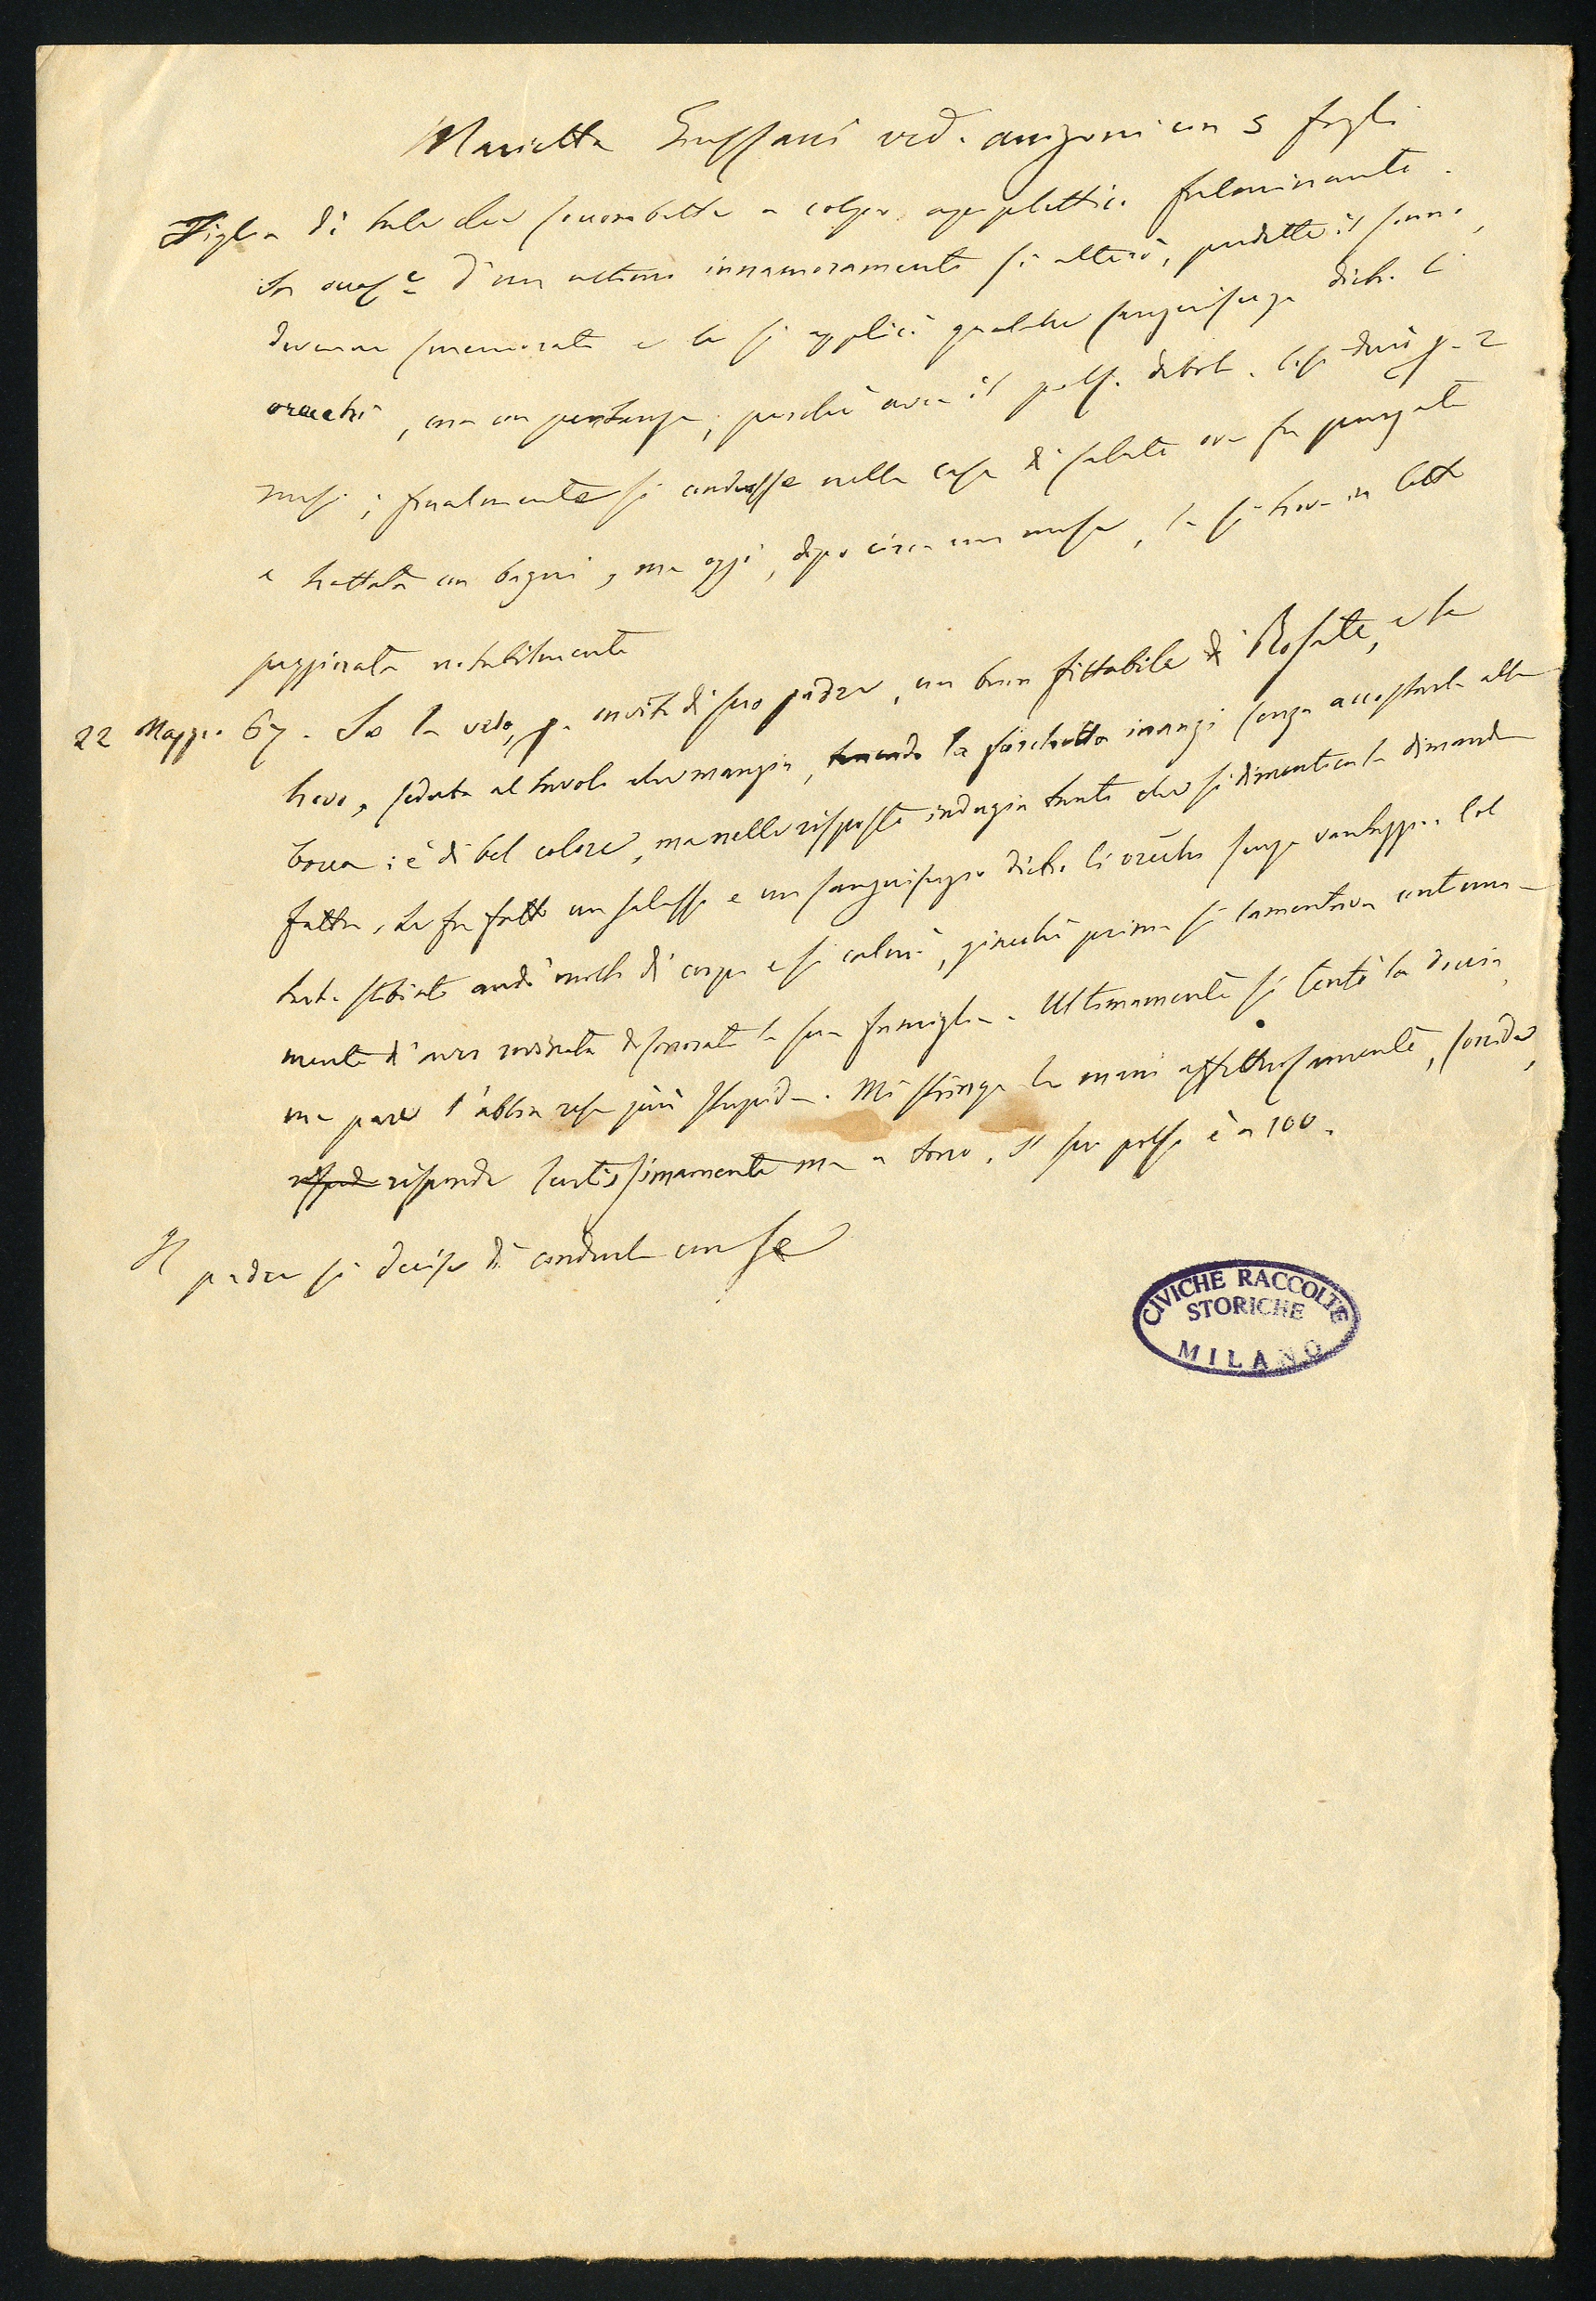 Marietta Gussani ved. Arrigoni con 5 figli
Figlia di tale che soccombette a colpo apoplettico fulminante.
In d'un ultimo innamoramento si alterò, perdette il sonno,
divenne smemorata e le si applicò qualche sanguisuga dietro li
orecchi, ma con perché avea il polso debole. Così durò p. 2
mesi; finalmente si condusse nella casa di salute ove fu purgata
e trattata con bagni, ma oggi, dopo circa un mese, la si trova in letto
peggiorata notabilmente
22 Maggio 67. Io la vedo, p. invito di suo padre, un buon fittabile di Rosate, e la
trovo, seduta al tavolo che mangia, tenendo la forchetta innanzi senza accostarla alla
bocca: è di bel colore, ma nelle risposte indugia tanto che si dimentica la dimanda
fatta. Le fu fatto un salasso e un sanguisugio dietro li orecchi senza vantaggio. Col
tart. stibiato andò molto di corpo e si calmò, giacché prima si lamentava continua-
mente d'aver rovinata disonorata la sua famiglia. Ultimamente si tentò la doccia,
ma pare l'abbia resa più stupida. Mi stringe le mani affettuosamente, sorride,
risponde lentissimamente ma a tono. Il suo polso è a 100.
Il padre si decise di condurla con se
CIVICHE RACCOLTE
STORICHE
MILANO